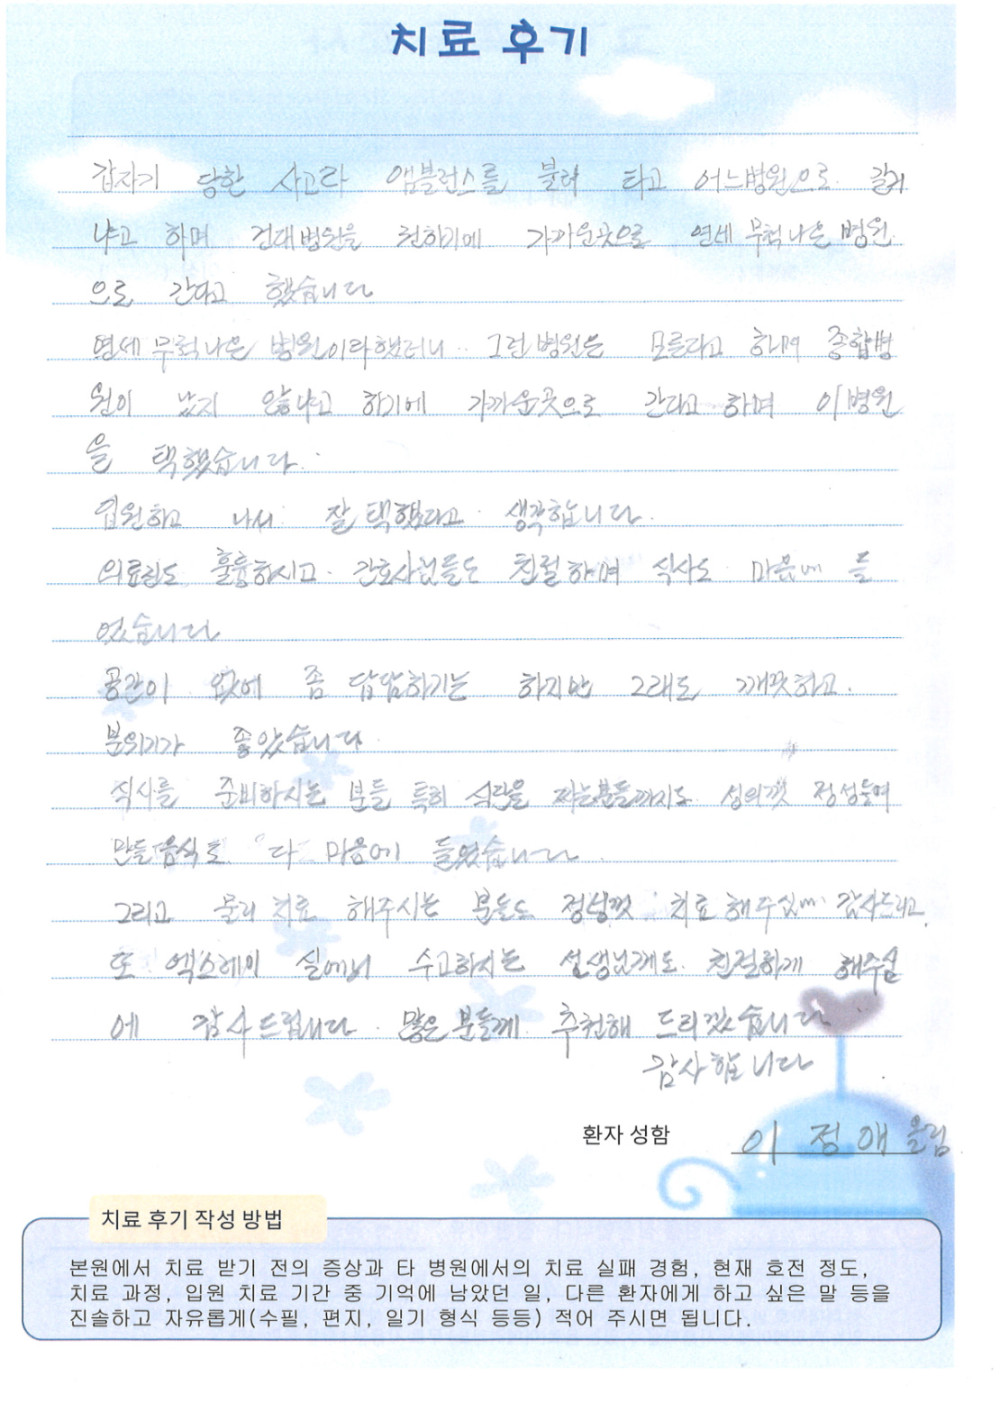 치료 후기
갑자기 당한 사고라 앰블런스를 불러 타고 어느병원으로 갈거
냐고 하며 건대병원을 원하기에 가까운곳으로 연세 무척나은 병원
으로 간다고 했습니다
연세 무척나은 병원이라했더니.. 그런병원은 모른다고 하며 종합병
원이 낫지 않냐고 하기에 가까운곳으로 간다고 하며 이병원
을 택했습니다.
입원하고 나서 잘 택했다고 생각합니다.
의료진도 훌륭하시고. 간호사님들도 친절하며 식사도 마음에 들
었습니다
공간이 없에 좀 답답하기는 하지만 그래도 깨끗하고.
분위기가 좋았습니다
식사를 준비하시는 분들 특히 식단을 짜는분들까지도 성의껏 정성들여
만들음식도 다 마음에 들었습니다.
그리고 물리 치료 해주시는 분들도 정성껏 치료 해주심에 감사드리고.
또 엑스레이 실에서 수고하시는 선생님께도 친절하게 해주심
에 감사드립니다. 많은분들께 추천해 드리겠습니다
감사합니다
환자 성함 이 정 애 올림
치료 후기 작성 방법
본원에서 치료 받기 전의 증상과 타 병원에서의 치료 실패 경험, 현재 호전 정도,
치료 과정, 입원 치료 기간 중 기억에 남았던 일, 다른 환자에게 하고 싶은 말 등을
진솔하고 자유롭게(수필, 편지, 일기 형식 등등) 적어 주시면 됩니다.